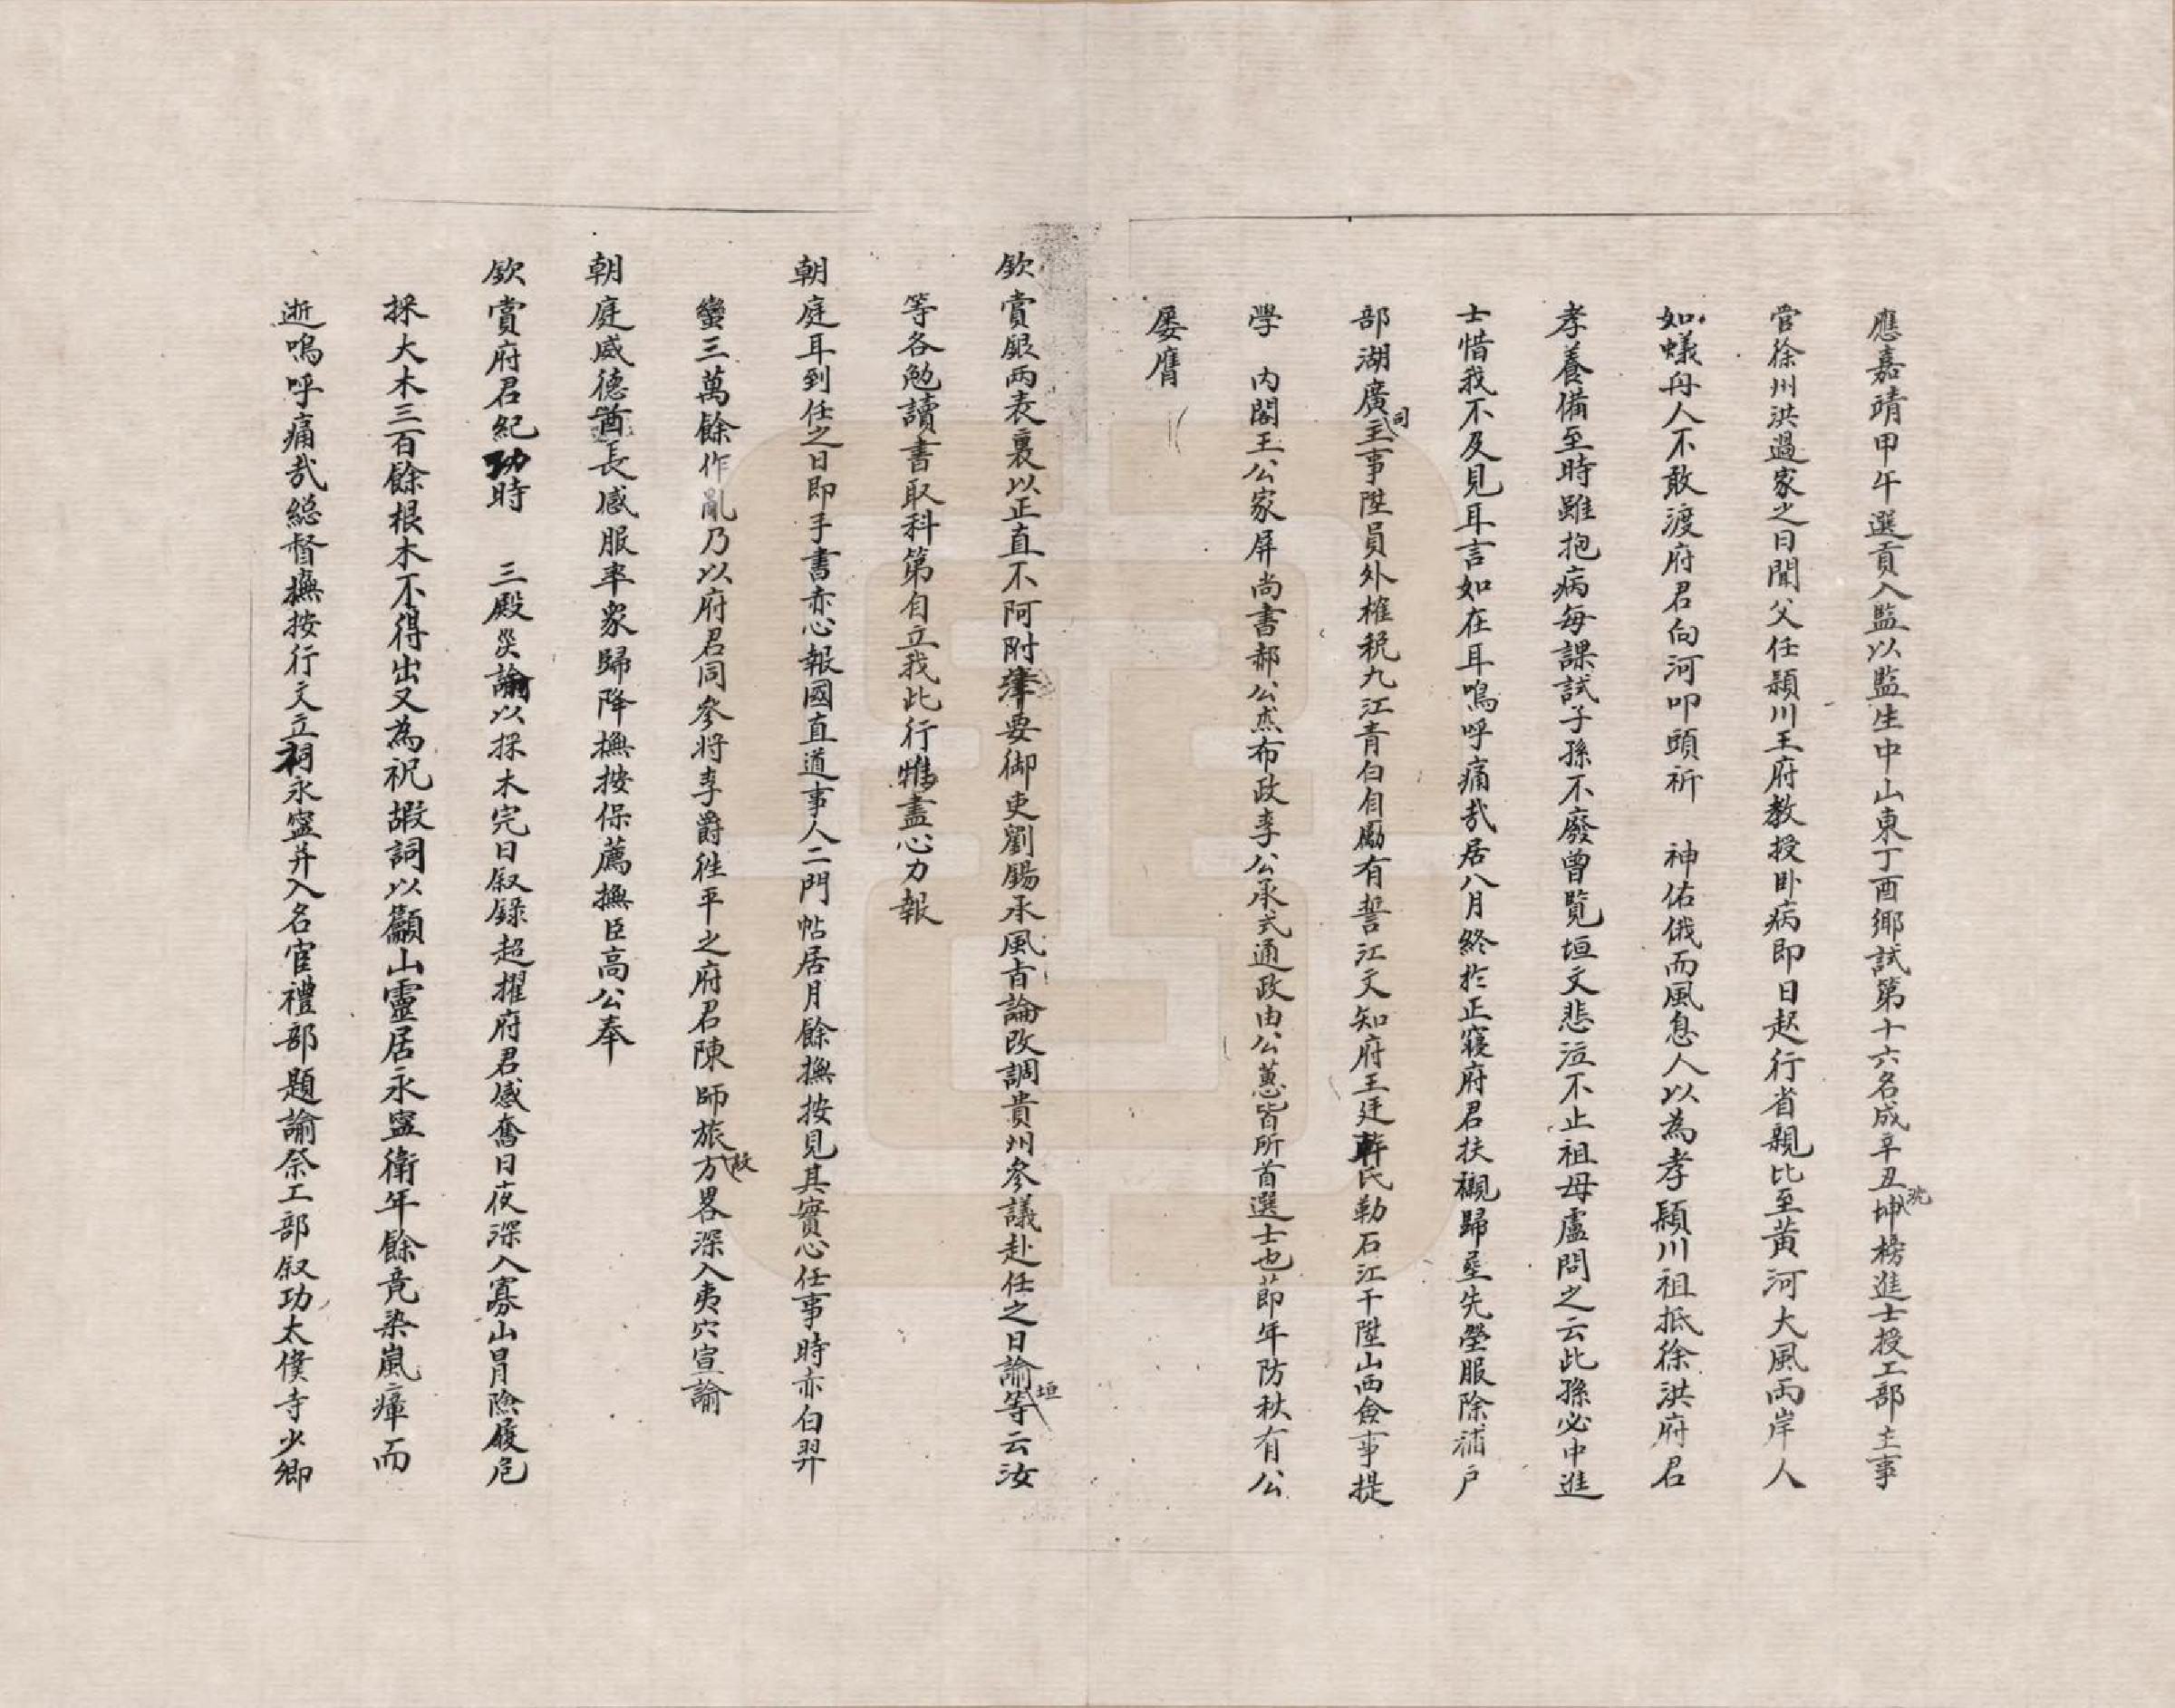 應嘉靖甲午選貢入監以監生中山東丁酉鄉試第十六名成辛丑沈坤榜進士授工部主事
管徐州洪過家之日聞父任潁川王府教授卧病即日起行省親比至黃河大風兩岸人
如蟻舟人不敢渡府君向河叩頭祈　神佑俄而風息人以為孝潁川祖抵徐洪府君
孝養備至時雖抱病每課試子孫不廢曾覽垣文悲泣不止祖母盧問之云此孫必中進
士惜我不及見耳言如在耳嗚呼痛哉居八月終於正寢府君扶櫬歸塟先塋服除補戶
部湖廣司主事陞員外榷稅九江青白自勵有誓江文知府王廷幹氏勒石江干陞山西僉事提
學　內閣王公家屏尚書郝公杰布政李公承式通政由公蕙皆所首選士也莭年防秋有公
屡膺
欽賞銀兩表裏以正直不阿附津要御史劉鍚承風旨論改調貴州參議赴任之日諭垣等云汝
等各勉讀書取科第自立我此行惟盡心力報
朝庭耳到任之日即手書赤心報國直道事人二門帖居月餘撫按見其實心任事時赤白羿
蠻三萬餘作亂乃以府君同參將李爵徃平之府君陳師旅方畧深入夷穴宣諭
朝庭威德酋長感服率衆歸降撫按保薦撫臣高公奉
欽賞府君紀功時　三殿災諭以採木完日叙錄超擢府君感奮日夜深入寡山冐險履危
採大木三百餘根木不得出又為祝嘏詞以籲山靈居永寧衛年餘竟染嵐瘴而
逝嗚呼痛哉総督撫按行文立祠永寧并入名宦禮部題諭祭工部叙功太僕寺少卿